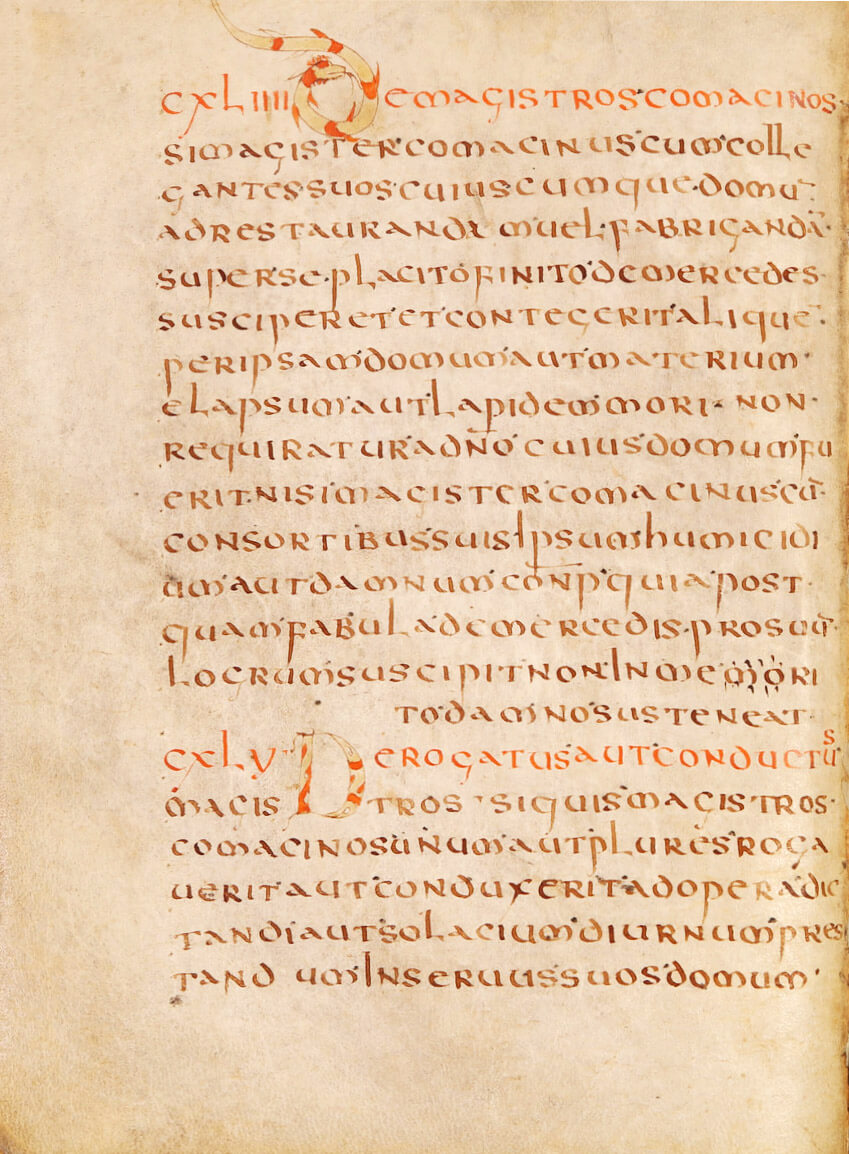 CXLIIII DE MAGISTROS COMACINOS·
SI MAGISTER COMACINUS CUM COLLE
GANTES SUOS CUIUSCUMQUE DOMŪ
AD RESTAURANDAM UEL FABRICANDĀ·
SUPER SE PLACITO FINITO DE MERCEDES
SUSCIPERET ET CONTEGERIT ALIQUĒ·
PER IPSAM DOMUM AUT MATERIUM
ELAPSUM AUT LAPIDEM MORI· NON·
REQUIRATUR A DÑO CUIUS DOMUM FU
ERIT· NISI MAGISTER COMACINUS CŪ·
CONSORTIBUS SUIS IPSUM HUMICIDI
UM AUT DAMNUM CONP̄ QUIA POST·
QUAM FABULA DE MERCEDIS· PRO SUŪ·
LOCRUM SUSCIPIT NON INMEMORI
TO DAMNO SUSTENEAT·
CXLV DE ROGATUS AUT CONDUCTUS
MAGISTROS· SI QUIS MAGISTROS·
COMACINOS UNUM AUT PLURES ROGA
UERIT AUT CONDUXERIT AD OPERA DIC
TANDI AUT SOLACIUM DIURNUM PRES
TANDUM INSER UUS SUOS DOMUM·